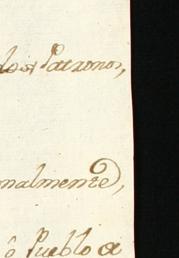 los Patronos,
nalmente,
ô Pueblo a